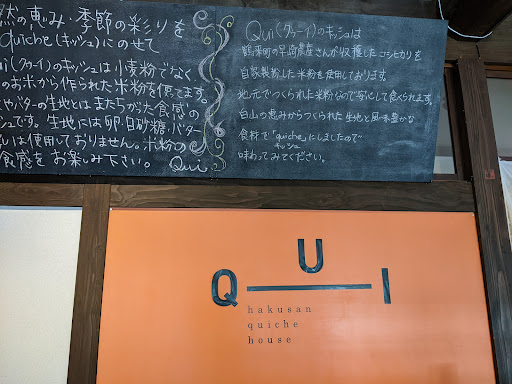 然の恵み・季節の彩りを
quiche(キッシュ)にのせて
ui(クゥーイ)のキッシュは小麦粉でなく
のお米から作られた米粉を使ってます。
やバターの生地とはまたちがた食感の
シュです。生地には卵・白砂糖・バター
しは使用しておりません。米粉の
食感をお楽しみ下さい。 Qui
Qui(クゥーイ)のキッシュは
鶴来町の早崎農産さんが収穫したコシヒカリを
自家製粉した米粉を使用しております
地元でつくられた米粉なので安心して食べられます。
白山の恵みからつくられた生地と風味豊かな
食材で"quiche"にしましたので〜
キッシュ
味わってみてください。
QUI
hakusan
quiche
house